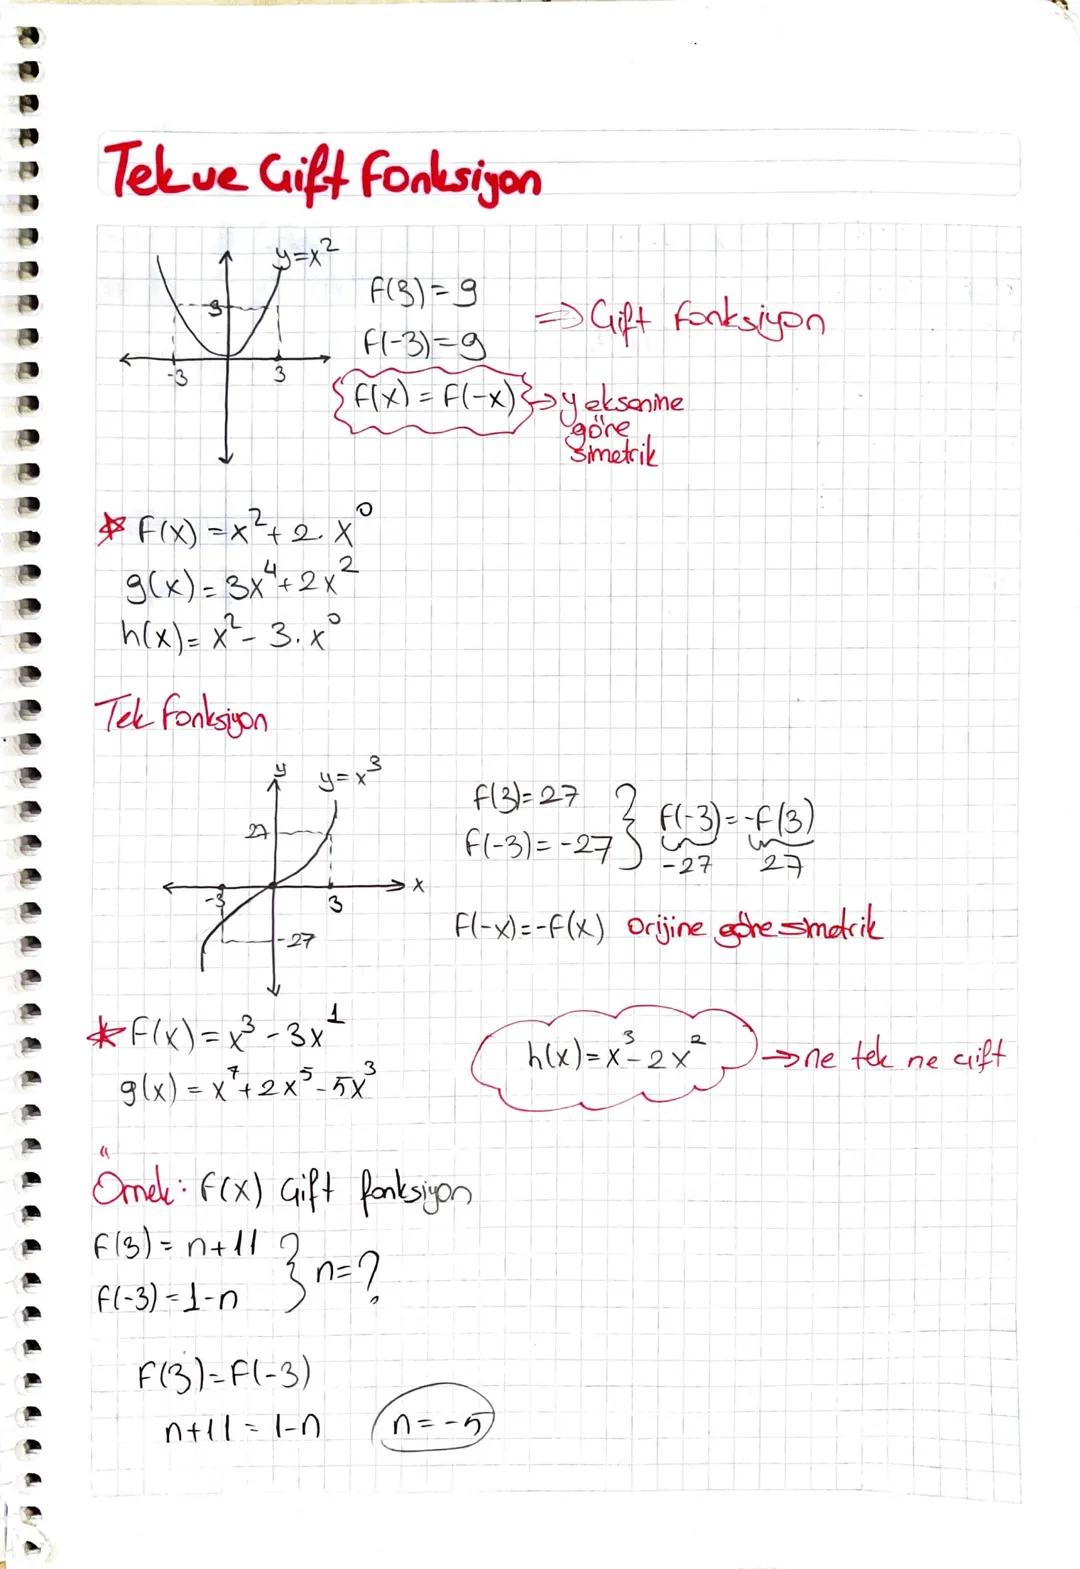 Tek ve Çift Fonksiyon
y=x²
9
-3 3
f(3)=9
f(-3)=9
⇒ Çift fonksiyon
f(x)=f(-x) → y eksenine
göre
simetrik
* f(x)=x²+2.x⁰
g(x)=3x⁴+2x²
h(x)=x²-3.x⁰
Tek fonksiyon
y y=x³
27
-3 3 x
-27
f(3)=27
f(-3)=-27 } f(-3)=-f(3)
-27 27
f(-x)=-f(x) orijine göre simetrik
* f(x)=x³-3x¹
g(x)=x⁷+2x⁵-5x³
h(x)=x³-2x² → ne tek ne çift
Örnek: f(x) Çift fonksiyon
f(3)=n+11
f(-3)=1-n } n=?
f(3)=f(-3)
n+11=1-n n=-5